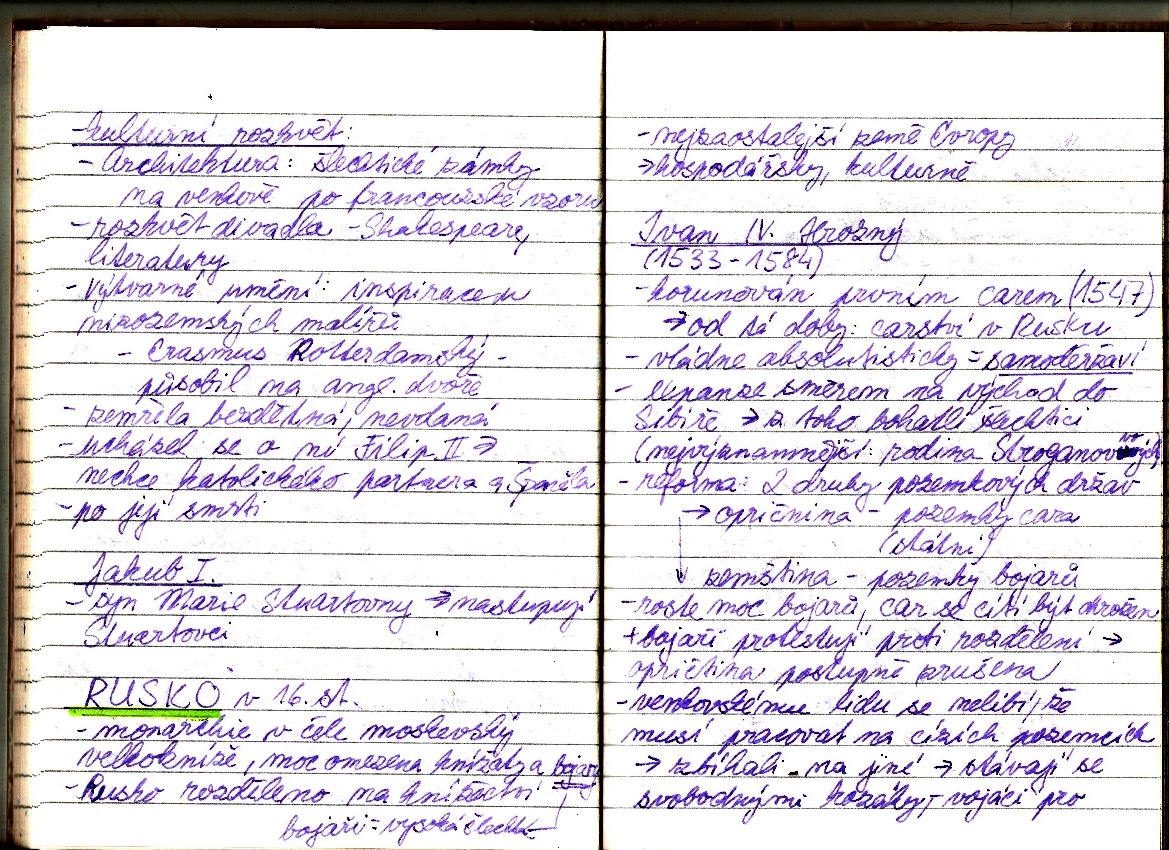 kulturní rozkvět:
- Architektura: šlechtické zámky
na venkově po francouzské vzoru
- rozkvět divadla - Shakespeare,
literatury
- výtvarné umění: inspirace u
nizozemských malířů
- Erasmus Rotterdamský -
působil na angl. dvoře
- zemřela bezdětná, nevdaná
- ucházel se o ni Filip II →
nechce katolického partnera a Španěla
- po její smrti
Jakub I.
- syn Marie Stuartovny → nastupují
Stuartovci
RUSKO v 16. st.
- monarchie v čele moskevský
velkokníže, moc omezena knížaty a bojary
- Rusko rozděleno na knížectví
bojaři = vysoká šlechta
- nejzaostalejší země Evropy
→ hospodářsky, kulturně
Ivan IV. Hrozný
(1533 - 1584)
- korunován prvním carem (1547)
→ od té doby: carství v Rusku
- vládne absolutisticky = samoděržaví
- expanze směrem na východ do
Sibiře → z toho bohatli šlechtici
(nejvýznamnější: rodina Stroganovových)
- reforma: 2 druhy pozemkových držav
→ opričnina - pozemky cara
(státní)
zemština - pozemky bojarů
- roste moc bojarů, car se cítí být ohrožen
+ bojaři protestují proti rozdělení →
opričtina postupně zrušena
- venkovskému lidu se nelíbí, že
musí pracovat na cizích pozemcích
→ zbíhali na jiné → stávají se
svobodnými kozáky, - vojáci pro